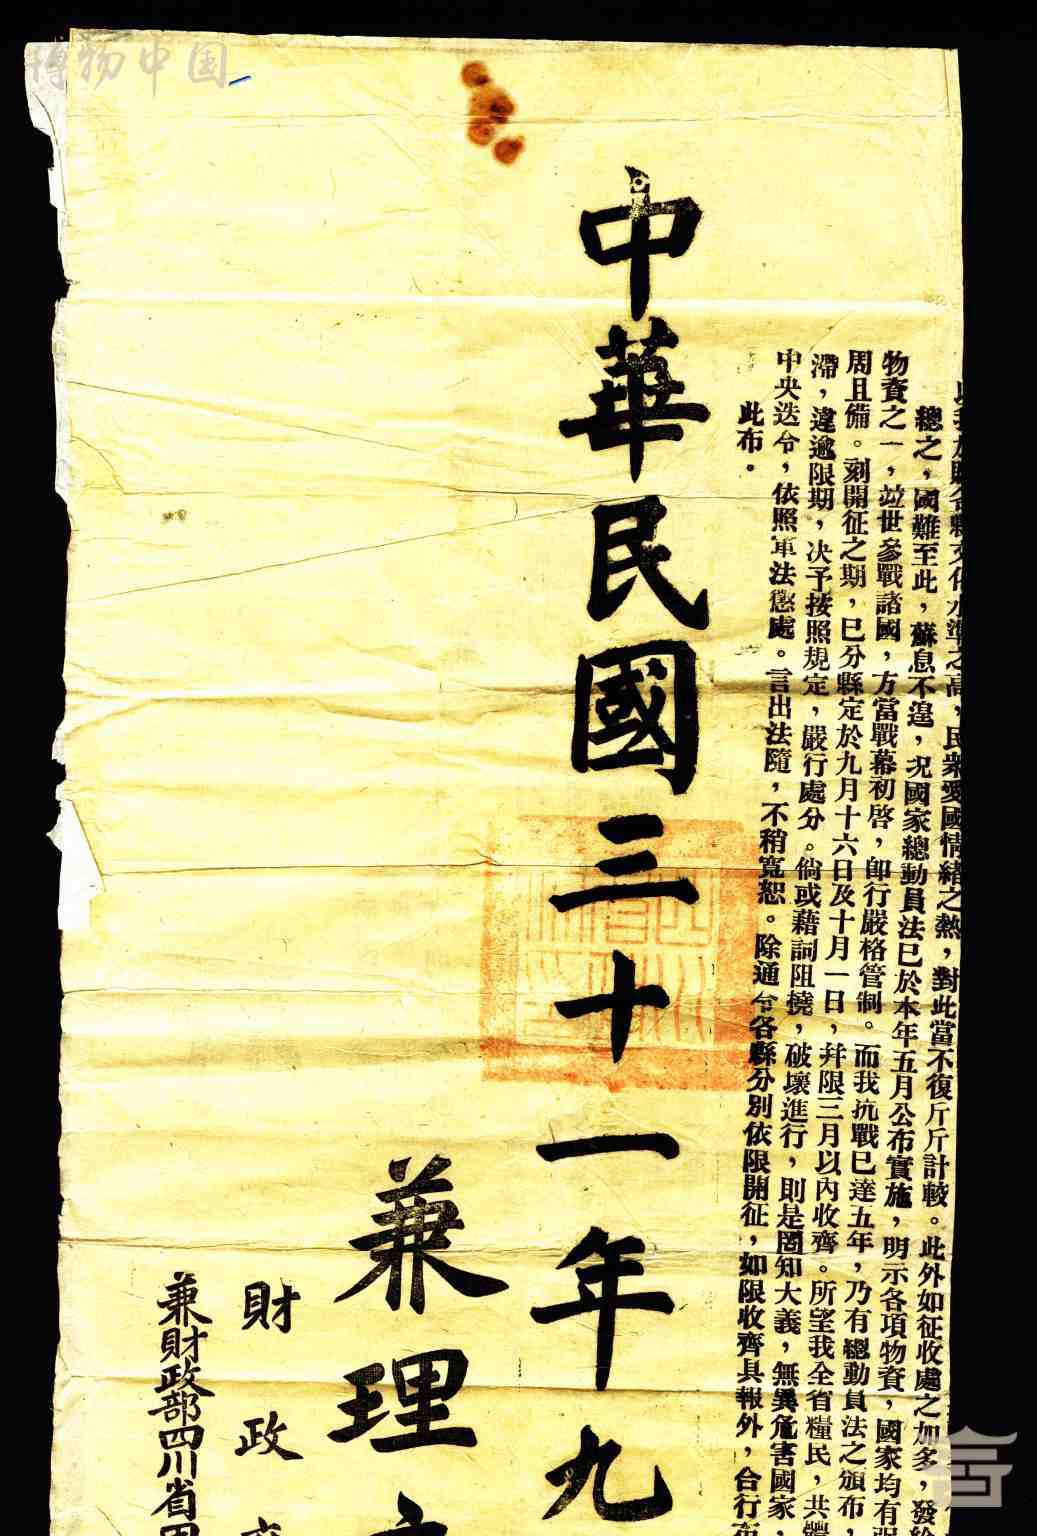 縣文化水準之高，民衆愛國情緒之熱，對此當不復斤斤計較。此外如征收處之加多，發給
總之，國難至此，蘇息不遑，况國家總動員法已於本年五月公布實施，明示各項物資，國家均有
物資之一，並世參戰諸國，方當戰幕初啓，卽行嚴格管制。而我抗戰已達五年，乃有總動員法之頒布
周且備。刻開征之期，已分縣定於九月十六日及十月一日，幷限三月以內收齊。所望我全省糧民，共
滯，違逾限期，决予按照規定，嚴行處分。倘或藉詞阻撓，破壞進行，則是罔知大義，無異危害國家，
中央迭令，依照軍法懲處。言出法隨，不稍寬恕。除通令各縣分別依限開征，如限收齊具報外，合行布
此布。
中華民國三十一年九
兼理
財政
兼財政部四川省田
博物中国